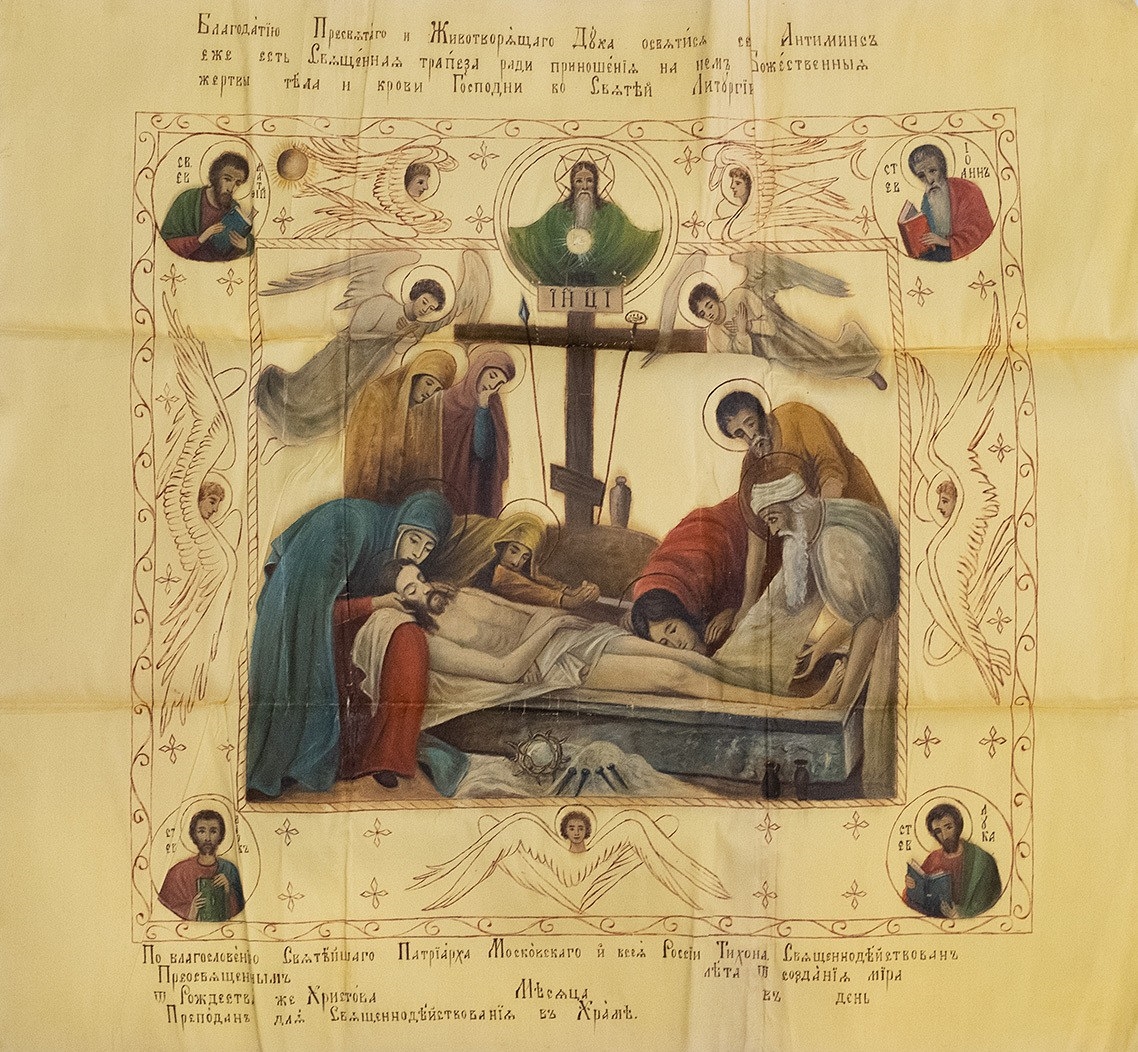 Благода́тїю Пресвѧта́го и Животворѧ́щаго Дꙋ́ха ѡсвѧти́сѧ се Антиминсъ
еже есть Свѧще́ннаѧ трапе́за ради приноше́нїѧ на немъ Боже́ственныѧ
жертвы тѣ́ла и крови Го́сподни во Свѧтѣ́й Литꙋргїи
СВ. ЕВ МАТѲЇЙ
СТ ЕВ ІОАННЪ
І҃Н Ц І
СТ ЕВ
СТ ЕВ ЛꙊКА
По благослове́нїю Свѧтѣ́йшаго Патрїа́рха Моско́вскаго и҆ всеѧ̀ Рѡссїи Тихона Свѧщеннодѣ́йствованъ
Преосвѧщеннымъ лѣта ѿ созда́нїѧ мїра
ѿ Рождества же Христо́ва Мѣсѧца въ день
Препо́данъ длѧ̀ Свѧщеннодѣ́йствованїѧ въ Хра́мѣ.